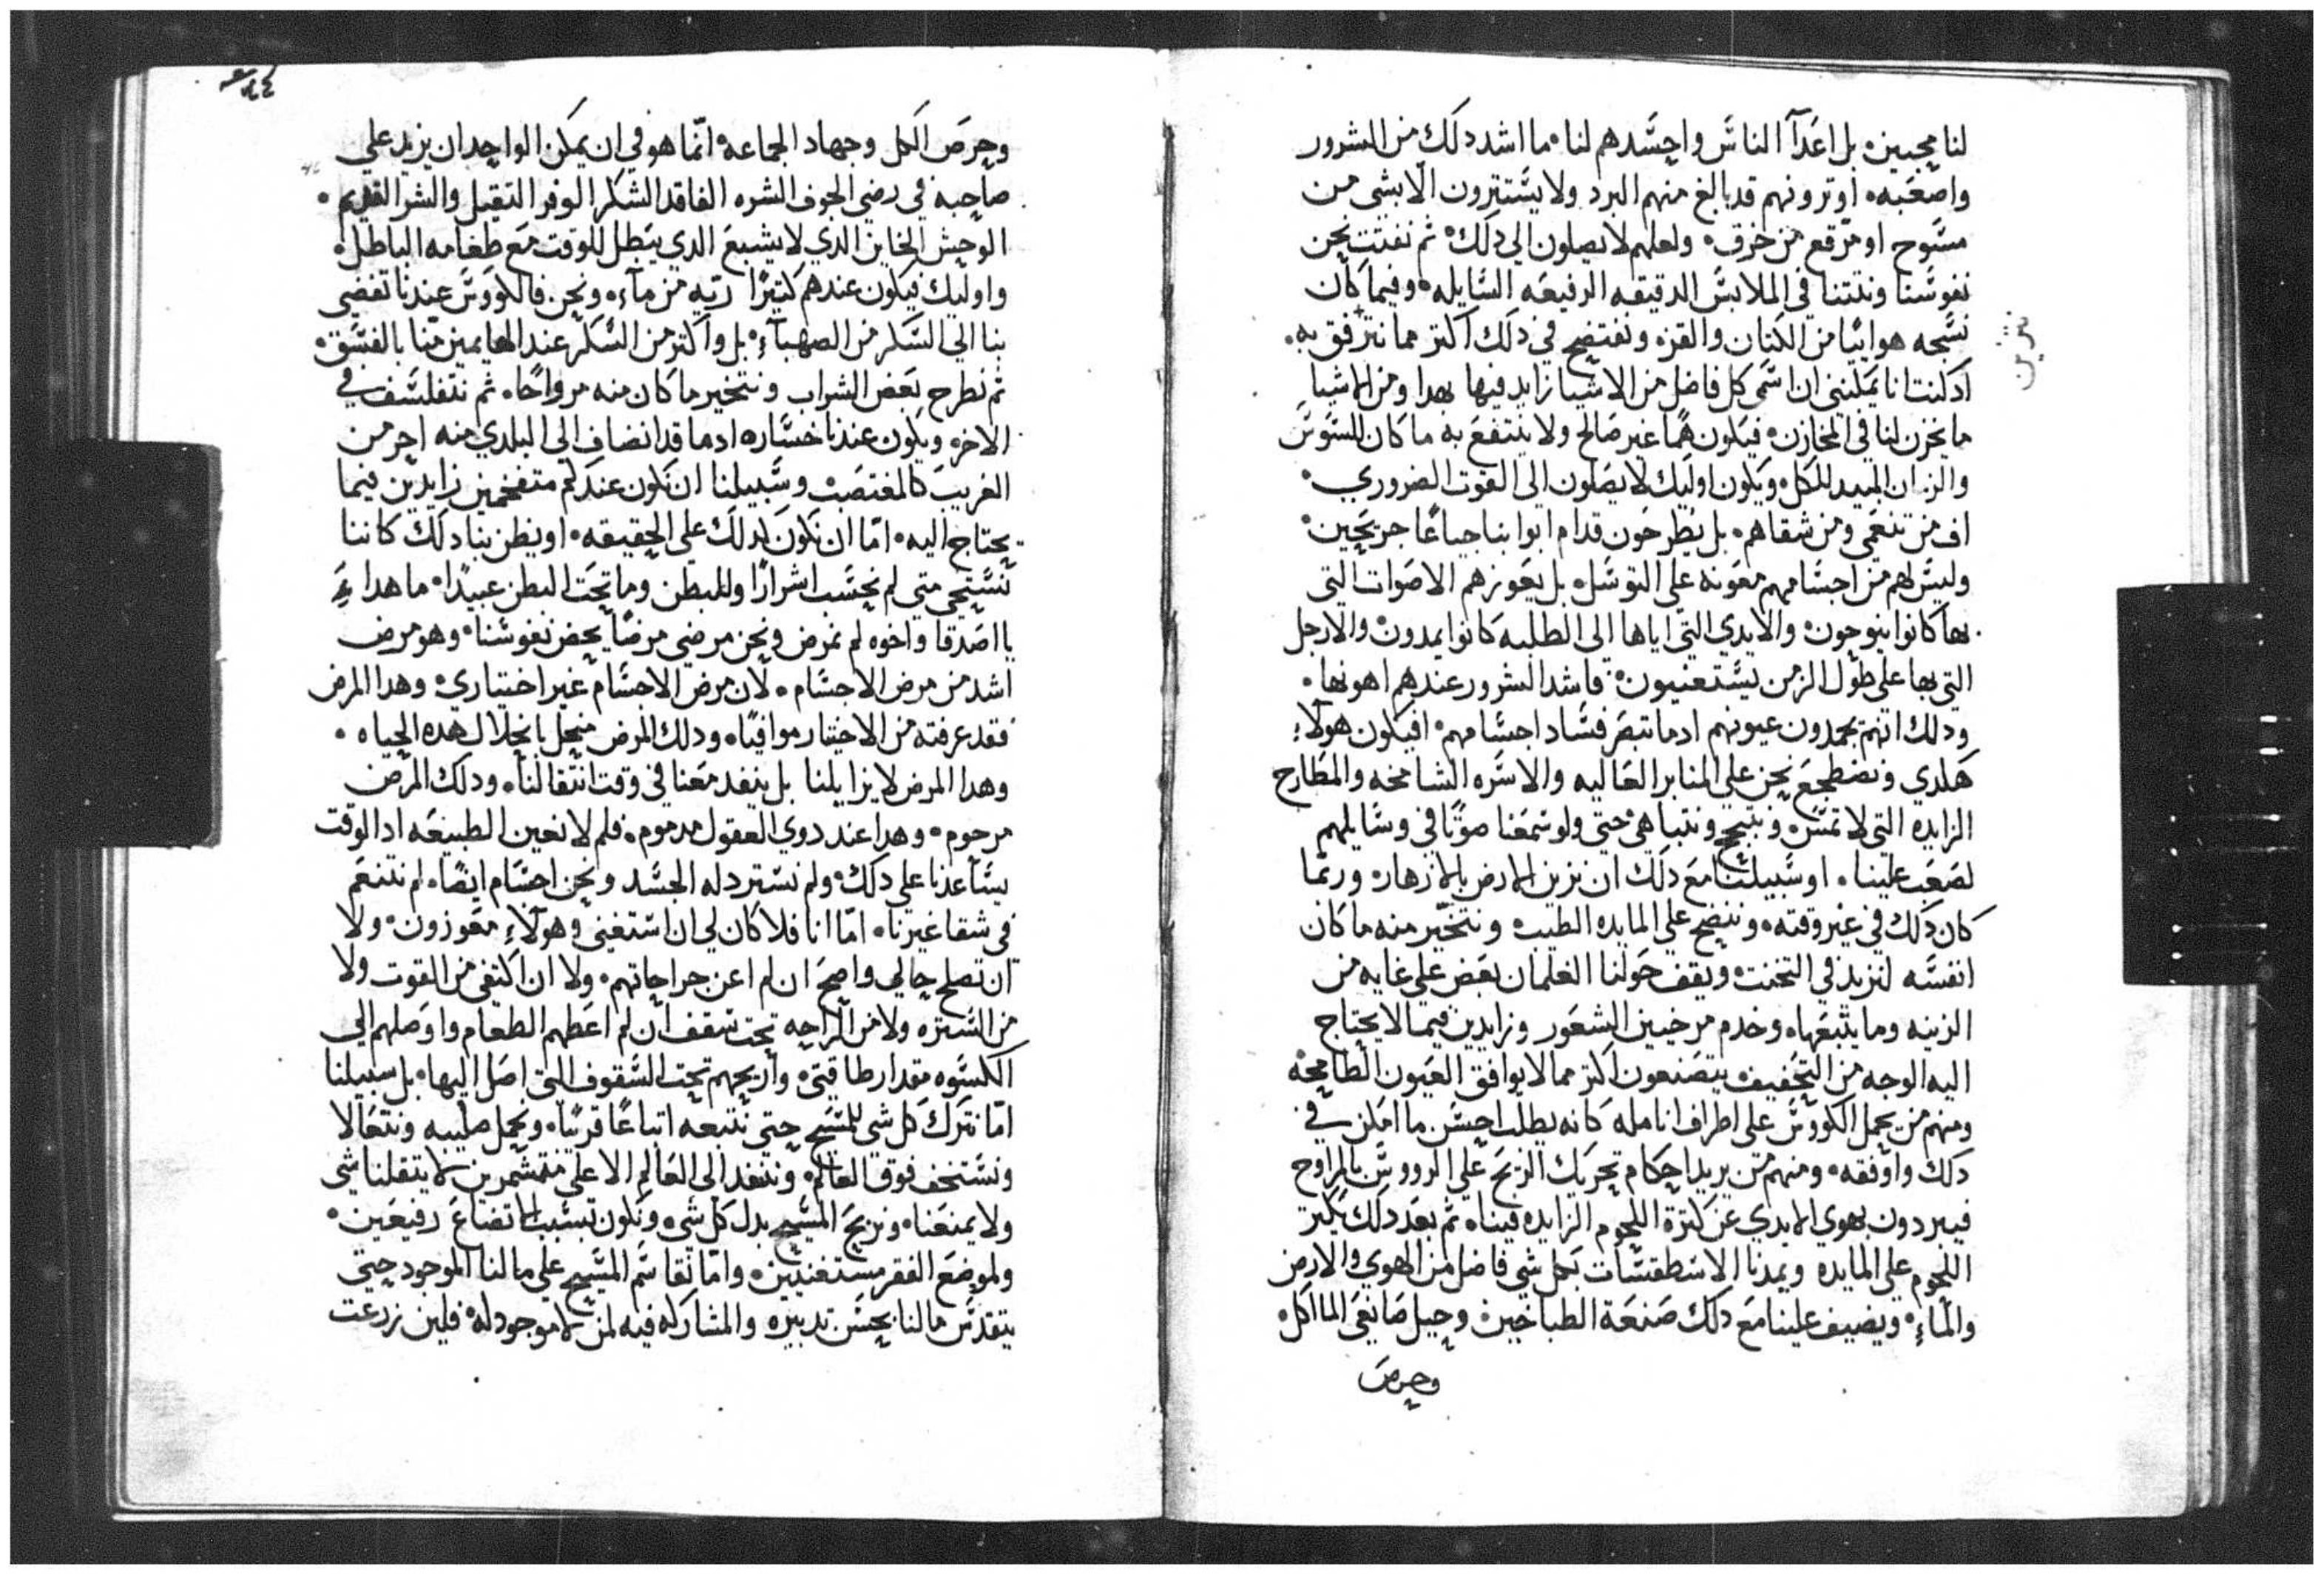 لنا محبين. بل اعدآ الناس واحسدهم لنا. ما اشد دلك من الشرور
واصعبه. اوترونهم قد بالغ منهم البرد ولا يستترون الا بشي من
مسوح او مرقع من خرق. ولعلهم لا يصلون الى دلك. ثم نفتت نحن
نفوسنا ونتنا في الملابس الدقيقه الرفيعه السايله. وفيما كان
نسجه هوائيا من الكتان والقز. ونفتضح في دلك اكتر مما نترفق به.
ادكنت انا يمكنني ان اسمى كل فاضل من الاشيا زايد فيها بهدا ومن الاشيا
ما يخزن لنا في المخازن. فيكون همًا غير صالح ولا ينتفع به ما كان للسوس
والزمان المبيد للكل. ويكون اوليك لا يصلون الى القوت الضروري.
اف من تنعمى ومن شقاهم. بل يطرحون قدام ابوابنا جياعًا جريحين.
وليس لهم من اجسامهم معونه على التوسل. بل يعوزهم الاصوات التى
بها كانوا ينوحون. والايدي التى اياها الى الطلبه كانوا يمدون. والارجل
التى بها على طول الزمن يستعنيون. فاشد الشرور عندهم اهونها.
ودلك انهم يحمدون عيونهم ادما تبصر فساد اجسامهم. افيكون هولاء
هكدي ونضطجع نحن على المنابر العاليه والاسره الشامخه والمطارح
الزايده التى لا تمس. ونبتجح ونتباهى حتى ولو سمعنا صوتًا في وسايلهم
لصعب علينا. او سبيلنا مع دلك ان نزين الارض بالازهار. وربما
كان دلك في غير وقته. وننضح على المايده الطيب. ونتخير منه ما كان
انفسه لنزيد في التخنت. ويقف حولنا الغلمان بعض على غايه من
الزينه وما يتبعها. وخدم مرخيين الشعور وزايدين فيما لا يحتاج
اليه الوجه من التحفيف يتصنعون اكتر مما لا يوافق العيون الطامحه
ومنهم من يحمل الكووس على اطراف انامله كانه يطلب احسن ما امكن في
دلك واوفقه. ومنهم من يريد احكام تحريك الريح على الرووس بالمراوح
فيبردون بهوي الايدي عن كترة اللحوم الزايده فينا. ثم بعد دلك يكتر
اللحوم على المايده ويمدنا الاسطقسات بكل شي فاضل من الهوي والارض
والماء. ويضيف علينا مع دلك صنعة الطباخين. وحيل صانعى الماكل.
وحرص
نثرين
وحرص الكل وجهاد الجماعه. انما هو في ان يمكن الواحد ان يزيد على
صاحبه في رضى الجوف الشره الفاقد الشكر الوفر التقيل والشر القديم.
الوحش الخاين الدي لا يشبع الدي يتبطل للوقت مع طعامه الباطل.
واوليك فيكون عندهم كتيرًا ريه من ماء. ونحن. فالكووس عندنا تفضي
بنا الى السكر من الصهباء. بل واكتر من السكر عند الهايمين منا بالفسق.
ثم نطرح بعض الشراب ونتخير ما كان منه مرواحًا. ثم نتفلسف في
الاخر. ويكون عندنا خساره ادما قد انضاف الى البلدي منه اخر من
الغريب كالمغتصب. وسبيلنا ان نكون عندكم متفخمين زايدين فيما
يحتاج اليه. اما ان نكون كدلك على الحقيقه. او يظن بنا دلك كاننا
نستحى متى لم نحسب اشرارًا وللبطن وما تحت البطن عبيدًا. ما هدا
يا اصدقا واخوه لم نمرض ونحن مرضى مرضًا يخص نفوسنا. وهو مرض
اشد من مرض الاجسام. لان مرض الاجسام غير اختياري. وهدا المرض
فقد عرفته من الاختيار موافيًا. ودلك المرض منحل بانحلال هده الحياه.
وهدا المرض لا يزايلنا بل ينفد معنا في وقت انتقالنا. ودلك المرض
مرحوم. وهدا عند دوي العقول مدموم. فلم لا نعين الطبيعه اد الوقت
يساعدنا على دلك. ولم نسترد له الجسد ونحن اجسام ايضًا. لم نتنعم
في شقا غيرنا. اما انا فلا كان لي ان استغنى وهولاء معوزون. ولا
ان تصلح حالي واصح ان لم اعن جراحاتهم. ولا ان اكتفى من القوت ولا
من الستره ولا من الراحه تحت سقف ان لم اعطهم الطعام واوصلهم الى
الكسوه مقدار طاقتى. واريحهم تحت السقوف التى اصل اليها. بل سبيلنا
اما نترك كل شي للمسيح حتى نتبعه اتباعًا قربًا. ونحمل صليبه ونتعالا
ونستخف فوق العالم. وننفد الى العالم الاعلى متشمرين لا يتقلنا شي
ولا يمنعنا. ونربح المسيح بدل كل شي. ونكون بسبب الاتضاع رفيعين.
ولموضع الفقر مستغنيين. واما نقاسم المسيح على مالنا الموجود حتى
يتقدس مالنا بحسن تدبيره والمشاركه فيه لمن لا موجود له. فلين زرعت